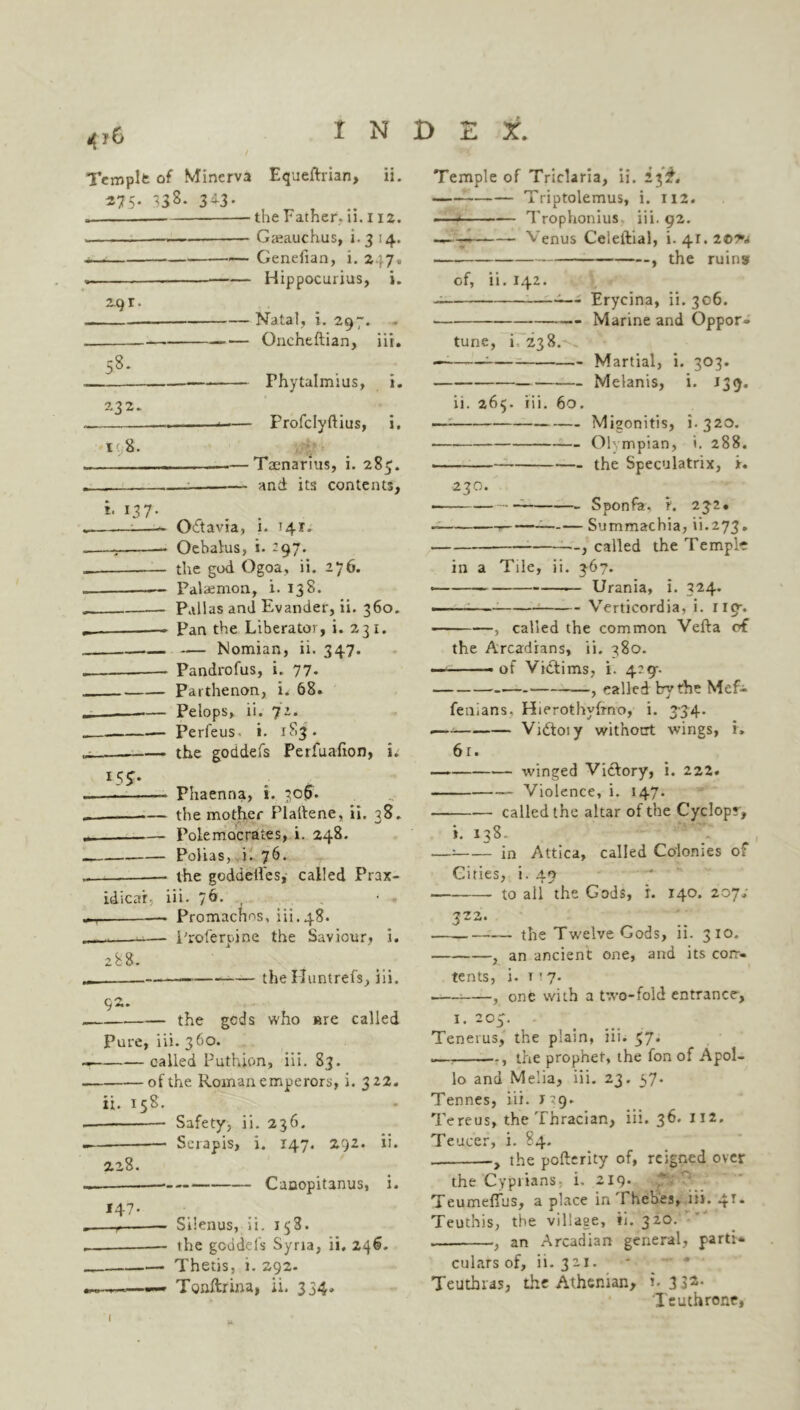 416
I N D E X.
Temple of Minerva Equeſtrian, ii.
275. 338. 343.
——— the Father, ii. 112.
——— Gæauchus, i. 314.
——— Geneſian, i. 247.
——— Hippocurius, i.
291.
——— Natal, i. 297.
——— Oncheſtian, iii.
58.
——— Phytalmius, i.
232.
——— Proſclyſtius, i.
198.
——— Tænarius, i. 285.
——— and its contents,
i. 137.
——— Octavia, i. 141.
——— Oebalus, i. 297.
——— the god Ogoa, ii. 276.
——— Palæmon, i. 138.
——— Pallas and Evander, ii. 360.
——— Pan the Liberator, i. 231.
——— — Nomian, ii. 347.
——— Pandroſus, i. 77.
——— Parthenon, i. 68.
——— Pelops, ii. 72.
——— Perſeus, i. 183.
——— the goddeſs Perſuaſion, i.
155.
——— Phaenna, i. 306.
——— the mother Plaſtene, ii. 38.
——— Polemocrates, i. 248.
——— Polias, i. 76.
——— the goddeſſes, called Prax-
idicæ, iii. 76.
——— Promachos, iii. 48.
——— Proſerpine the Saviour, i.
288.
——— the Huntreſs, iii.
92.
——— the gods who are called
Pure, iii. 360.
——— called Puthion, iii. 83.
——— of the Roman emperors, i. 322.
ii. 158.
——— Safety, ii. 236.
——— Serapis, i. 147. 292. ii.
228.
——— Canopitanus, i.
147.
——— Silenus, ii. 158.
——— the goddeſs Syria, ii. 246.
——— Thetis, i. 292.
——— Tonſtrina, ii. 334.
Temple of Triclaria, ii. 232.
——— Triptolemus, i. 112.
——— Trophonius, iii. 92.
——— Venus Celeſtial, i. 41. 207.
———, the ruins
of, ii. 142.
——— Erycina, ii. 306.
——— Marine and Oppor-
tune, i. 238.
——— Martial, i. 303.
——— Melanis, i. 139.
ii. 265. iii. 60.
——— Migonitis, i. 320.
——— Olympian, i. 288.
——— the Speculatrix, i.
230.
——— Sponſa, i. 232.
——— Summachia, ii. 273.
———, called the Temple
in a Tile, ii. 367.
——— Urania, i. 324.
——— Verticordia, i. 119.
———, called the common Veſta of
the Arcadians, ii. 380.
——— of Victims, i. 429.
———, called by the Meſ-
ſenians, Hierothyſrno, i. 334.
——— Victory without wings, i.
61.
——— winged Victory, i. 222.
——— Violence, i. 147.
——— called the altar of the Cyclops,
i. 138.
——— in Attica, called Colonies of
Cities, i. 49
——— to all the Gods, i. 140. 207.
322.
——— the Twelve Gods, ii. 310.
———, an ancient one, and its con-
tents, i. 117.
———, one with a two-fold entrance,
1. 205.
Tenerus, the plain, iii. 57.
———, the prophet, the ſon of Apol-
lo and Melia, iii. 23. 57.
Tennes, iii. 129.
Tereus, the Thracian, iii. 36. 112.
Teucer, i. 84.
———, the poſterity of, reigned over
the Cyprians, i. 219.
Teumeſſus, a place in Thebes, iii. 41.
Teuthis, the village, ii. 320.
———, an Arcadian general, parti-
culars of, ii. 321.
Teuthras, the Athenian, i. 332.
Teuthrone,